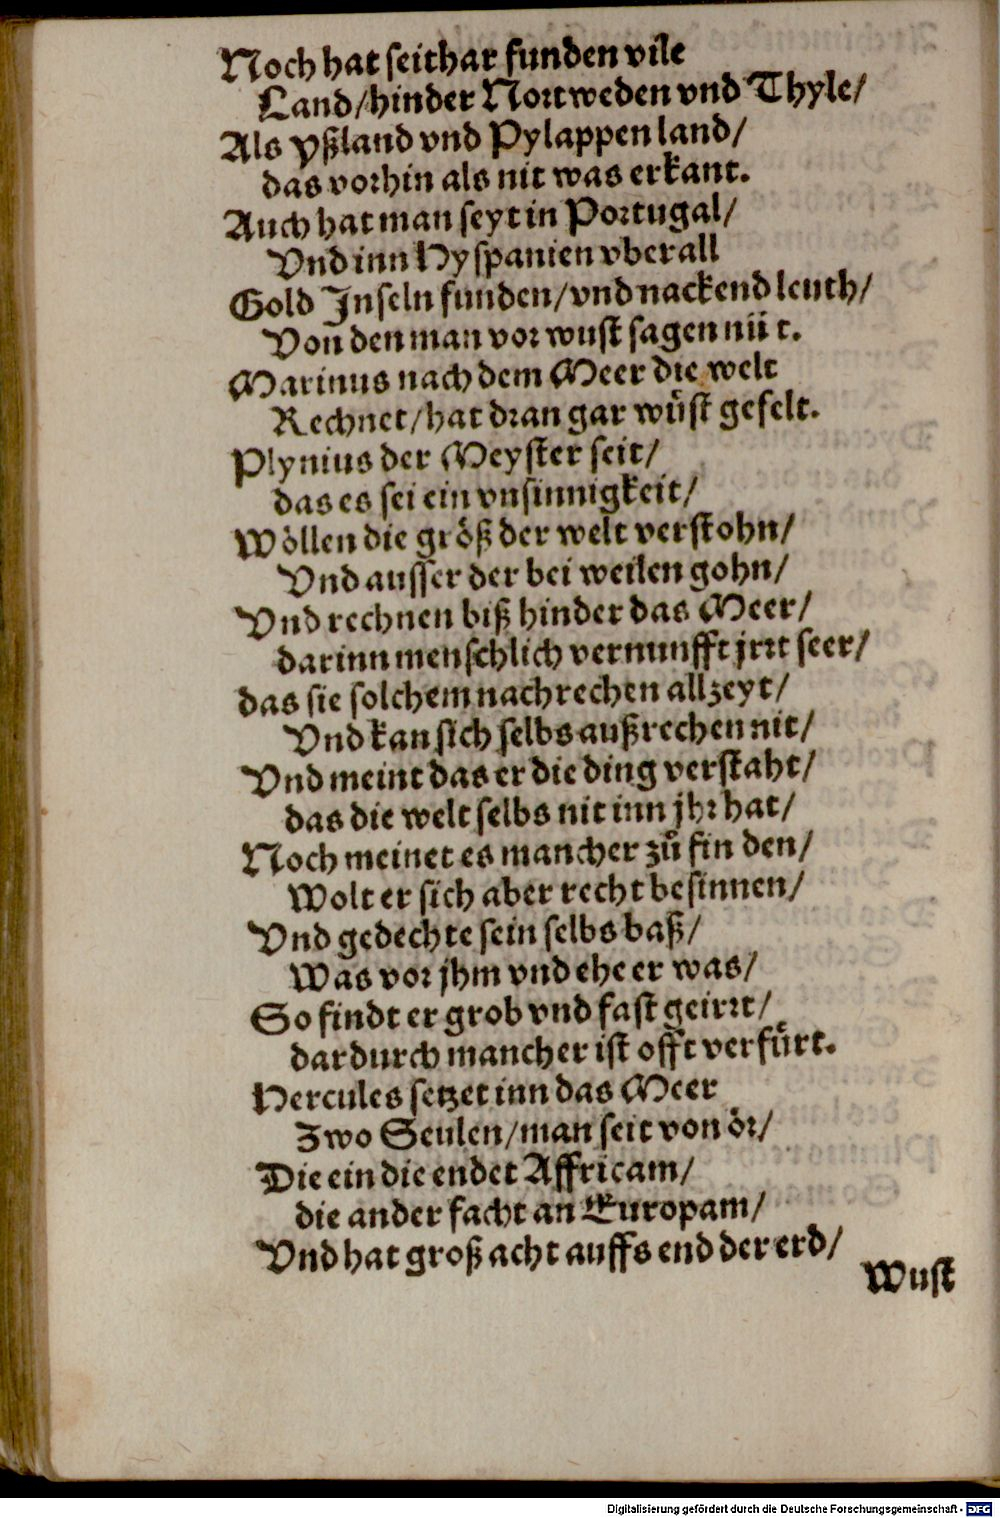 Noch hat seithar funden vile
Land/hinder Nortweden vnd Thyle/
Als yßland vnd Pylappen land/
das vorhin als nit was erkant.
Auch hat man seyt in Portugal/
Vnd inn Hyspanien vberall
Gold Inseln funden/vnd nackend leuth/
Von den man vor wust sagen nüt.
Marinus nach dem Meer die welt
Rechnet/hat dran gar wuͤst gefelt.
Plynius der Meyster seit/
das es sei ein vnsinnigkeit/
Wöllen die größ der welt verstohn/
Vnd ausser der bei weilen gohn/
Vnd rechnen biß hinder das Meer/
darinn menschlich vernunfft jrrt seer/
das sie solchem nachrechen allzeyt/
Vnd kan sich selbs außrechen nit/
Vnd meint das er die ding verstaht/
das die welt selbs nit inn jhr hat/
Noch meinet es mancher zuͦ fin den/
Wolt er sich aber recht besinnen/
Vnd gedechte sein selbs baß/
Was vor jhm vnd ehe er was/
So findt er grob vnd fast geirrt/
dardurch mancher ist offt verfuͤrt.
Hercules setzet inn das Meer
Zwo Seulen/man seit von ör/
Die ein die endet Affricam/
die ander facht an Europam/
Vnd hat groß acht auffs end der erd/
Wust
Digitalisierung gefördert durch die Deutsche Forschungsgemeinschaft - DFG